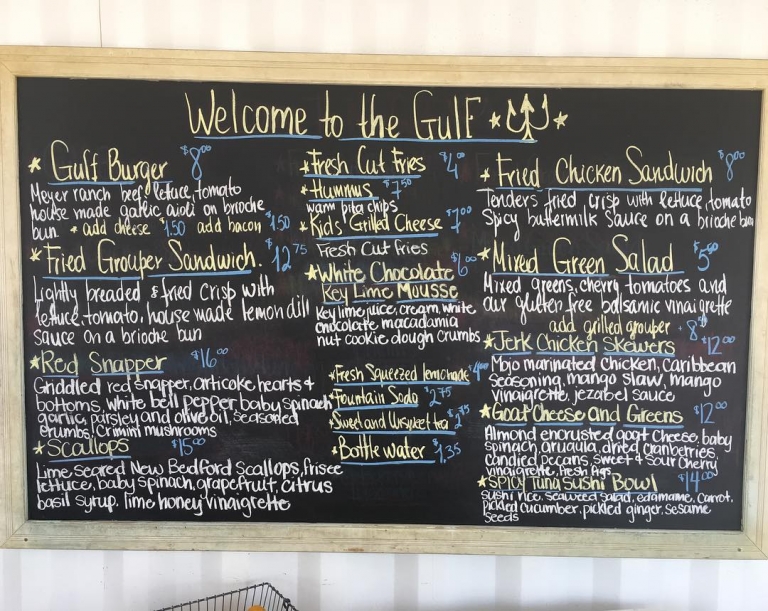 Welcome to the Gulf
* Gulf Burger $8.00
Meyer ranch beef, lettuce, tomato
house made garlic aioli on brioche
bun * add cheese $1.50 add bacon $1.50
* Fried Grouper Sandwich. $12.75
Lightly breaded & fried crisp with
lettuce, tomato, house made lemon dill
sauce on a brioche bun
* Red Snapper $16.00
Griddled red snapper, articoke hearts +
bottoms, white bell pepper, baby spinach
garlic, parsley and olive oil, seasoned
crumbs, crimini mushrooms
* Scallops $15.00
Lime seared New Bedford Scallops, frisee
lettuce, baby spinach, grapefruit, citrus
basil syrup, lime honey vinaigrette
* Fresh Cut Fries $4.00
* Hummus $7.50
warm pita chips
* Kids Grilled Cheese $7.00
Fresh Cut fries
* White Chocolate $6.00
Key Lime Mousse
Key lime juice, cream, white
chocolate macadamia
nut cookie dough crumbs
* Fresh Squeezed lemonade $4.00
* Fountain Soda $2.75
* Sweet and Unsweet tea
* Bottle water $1.35
* Fried Chicken Sandwich $8.00
Tenders fried crisp with lettuce, tomato
Spicy buttermilk sauce on a brioche bun
* Mixed Green Salad
Mixed greens, cherry tomatoes and
our gluten free balsamic vinaigrette
add grilled grouper +
* Jerk Chicken Skewers $12.00
Mojo marinated chicken, caribbean
seasoning, mango slaw, mango
vinaigrette, jezabel sauce
* Goat Cheese and Greens $12.00
Almond encrusted goat cheese, baby
spinach, arugula, dried cranberries,
candied pecans, sweet & sour cherry
vinaigrette, fresh figs
* Spicy Tuna Sushi Bowl $14.00
sushi rice, seaweed salad, edamame, carrot,
pickled cucumber, pickled ginger, sesame
seeds